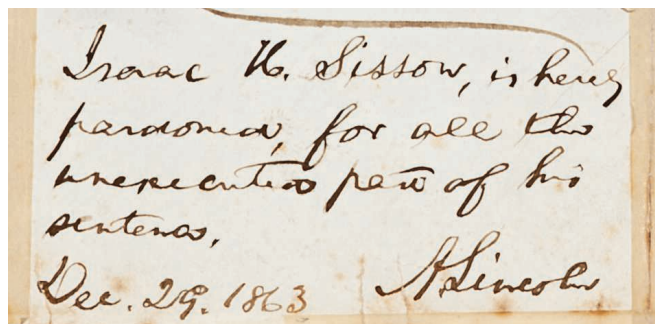 Isaac H. Sissow, is hereby
pardoned, for all the
unexecuted part of his
sentence.
Dec. 29. 1863 A. Lincoln